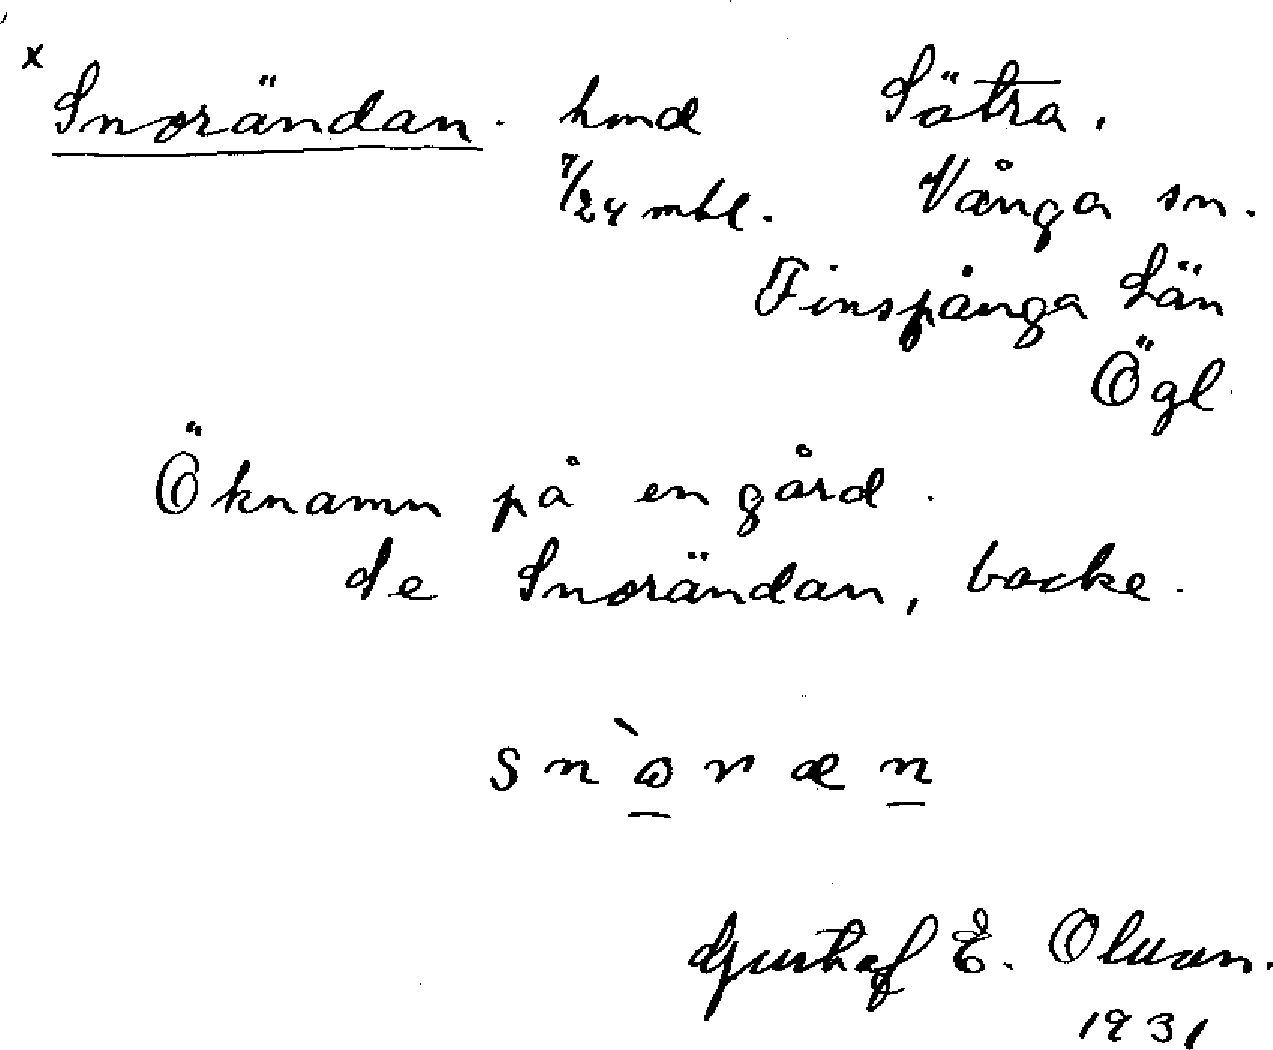 x Snorändan. hmd Sätra.
7/24 mtl. Vånga sn.
Finspånga län
Ögl.
Öknamn på en gård.
de Snorändan, backe.
snòræn
Gustaf E. Olsson.
1931